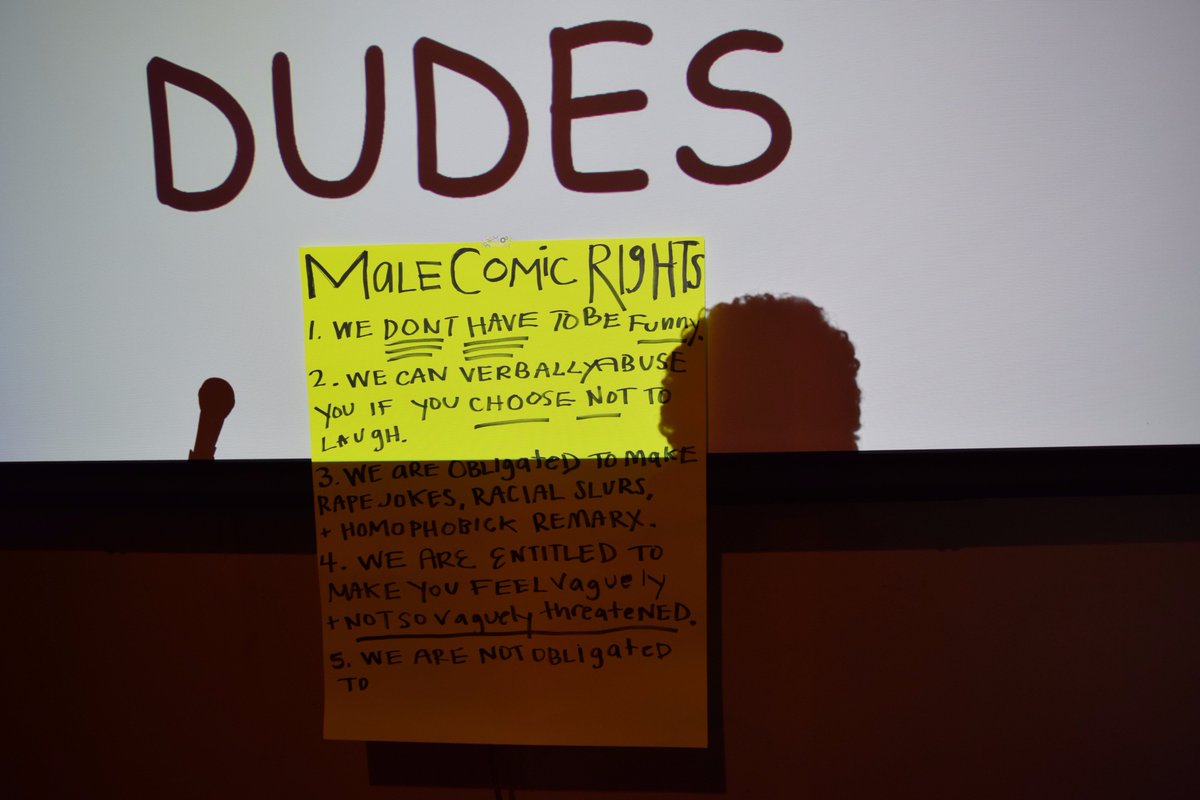 DUDES
MALE COMIC RIGHTS
1. WE DONT HAVE TO BE Funny.
2. WE CAN VERBALLY ABUSE
YOU IF YOU CHOOSE NOT TO
LAUGH.
3. WE ARE OBLIGATED TO MAKE
RAPE JOKES, RACIAL SLURS,
+ HOMOPHOBICK REMARX.
4. WE ARE ENTITLED TO
MAKE YOU FEEL Vaguely
+ NOT SO Vaguely threateNED.
5. WE ARE NOT OBLIGATED
TO